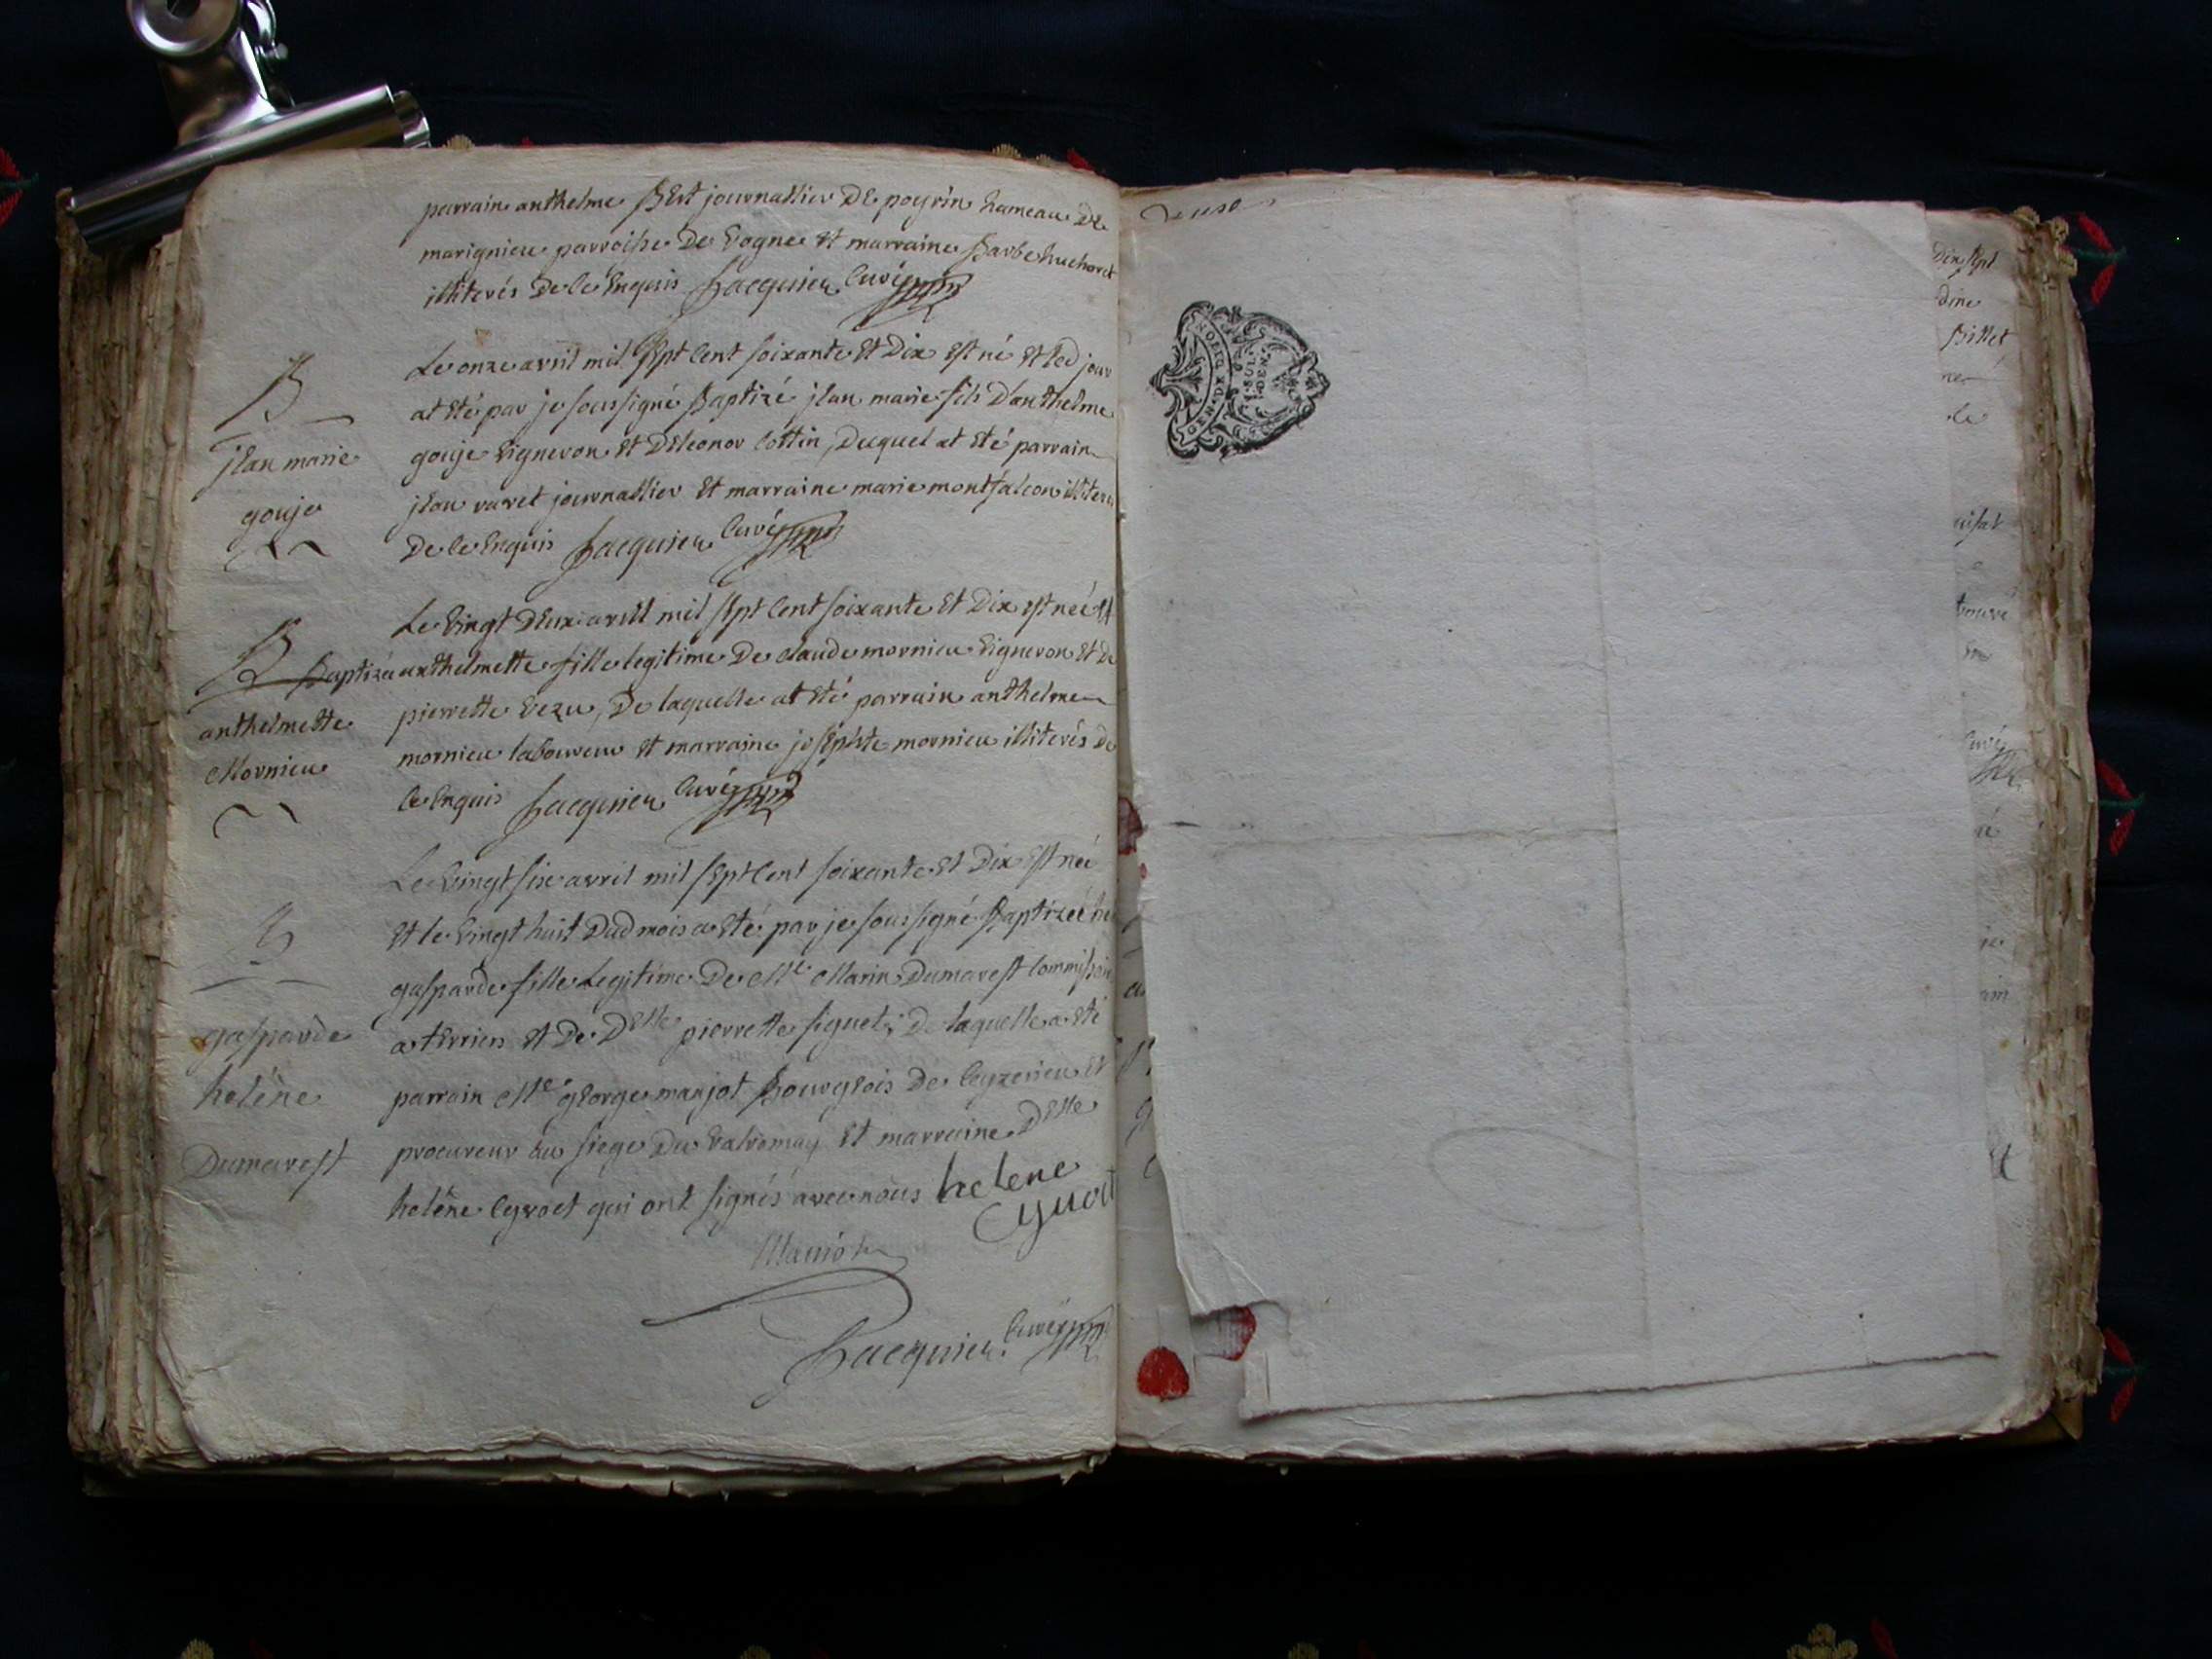 parrain anthelme Bert journallier De poyrin hameau De
marignieu parroisse De Vogne et marraine Barbe huchoret
illiterés De ce Enquis Jacquier Curé
B
jean marie
gouje
Le onze avril mil sept Cent soixante et Dix est né et led jour
at eté par je soussigné Baptizé jean marie fils D'anthelme
gouje Vigneron et Deleonor Cottin, Duquel at eté parrain
jean varet journallier et marraine marie montfalcon illiteres
De ce Enquis Jacquier Curé
B
anthelmette
Mornieu
Le Vingt Deux avril mil sept Cent soixante et Dix est neé et
Baptizée anthelmette fille legitime De claude mornieu Vigneron et De
pierrette Vezu, De laquelle at eté parrain anthelme
mornieu laboureur et marraine josephte mornieu illiterés de
ce Enquis Jacquier Curé
B
gasparde
heléne
Dumarest
Le Vingt six avril mil sept Cent soixante et Dix est neé
et le Vingt huit Dud mois a eté par je soussigné Baptizeé he
gasparde fille Legitime De Me Marin Dumarest Commissair
a terriers et De Delle pierrette siguet; De laquelle a eté
parrain Me george manjot Bourgeois De Ceyzerieu et
procureur au siege Du Valromay et marraine Delle
heléne Cyvoct qui ont signés avec nous helene
Cyvoct
Manjot
Jacquier Curé
GEN DIJON
1 SOL
DEN
Dix sept
Dine
Billet
ne
de
trouve
Curé
et